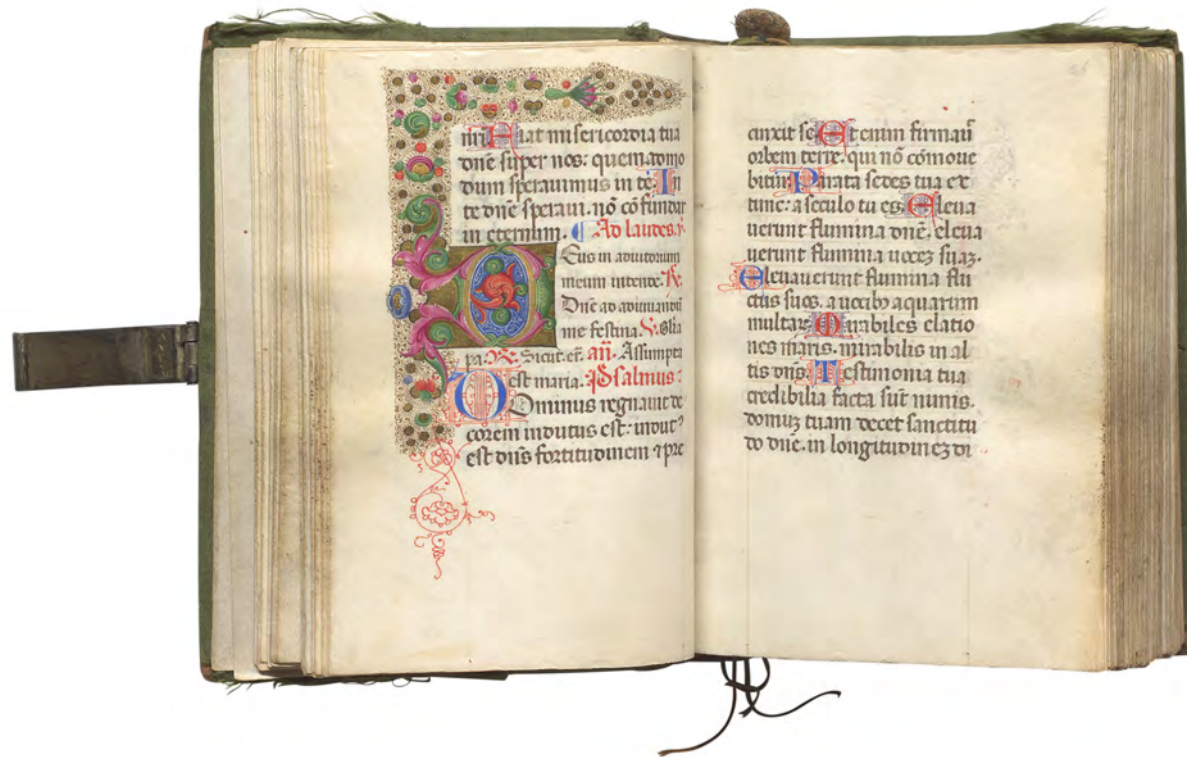 nr̄i Fiat misericordia tua
dn̄e super nos: quemadmo
dum speravimus in te. In
te dn̄e speravi. nō cōfundar
in eternum. Ad laudes. v̄.
Deus in adiutorium
meum intende. R.
Dn̄e ad adiuvandū
me festina. V. Gl̄ia
pa. R. Sicut. er̄. an̄. Assumpta
est maria. Psalmus:
Dominus regnavit de
corem indutus est: indut᷒
est dn̄s fortitudinem ⁊ pre
cinxit se Et enim firmavi
orbem terre. qui nō cōmove
bitur. Parata sedes tua ex
tunc: a seculo tu es. Eleva
uerunt flumina dn̄e. eleva
uerunt flumina vocez suaz.
Elevaverunt flumina flu
ctus suos. a vocibꝫ aquarum
multar. Mirabiles elatio
nes maris. mirabilis in al
tis dn̄s. Testimonia tua
credibilia facta sūt nimis.
domuz tuam decet sanctitu
do dn̄e. in longitudinez di